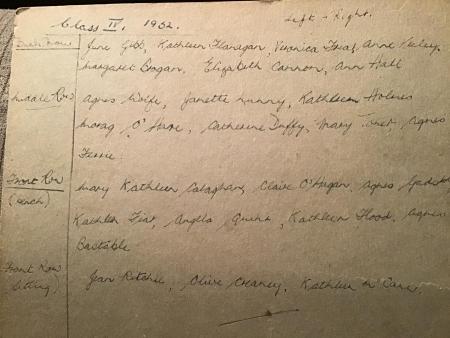 Class IV, 1952. Left → Right.
June Gibb, Kathleen Flanagan, Veronica Anne
Margaret Brogan, Elizabeth Cannon, Ann Hall
Middle Row Agnes Wolfe, Janette Lunny, Kathleen Holmes
Morag Catherine Duffy, Mary Agnes
Front Row Mary Kathleen Calaghan, Claire O'Hagan, Agnes
Kathleen Angela Quinn, Kathleen Flood, Agnes
Bastable
Front Row Jean Ritchie, Olive Creaney, Kathleen
sitting)